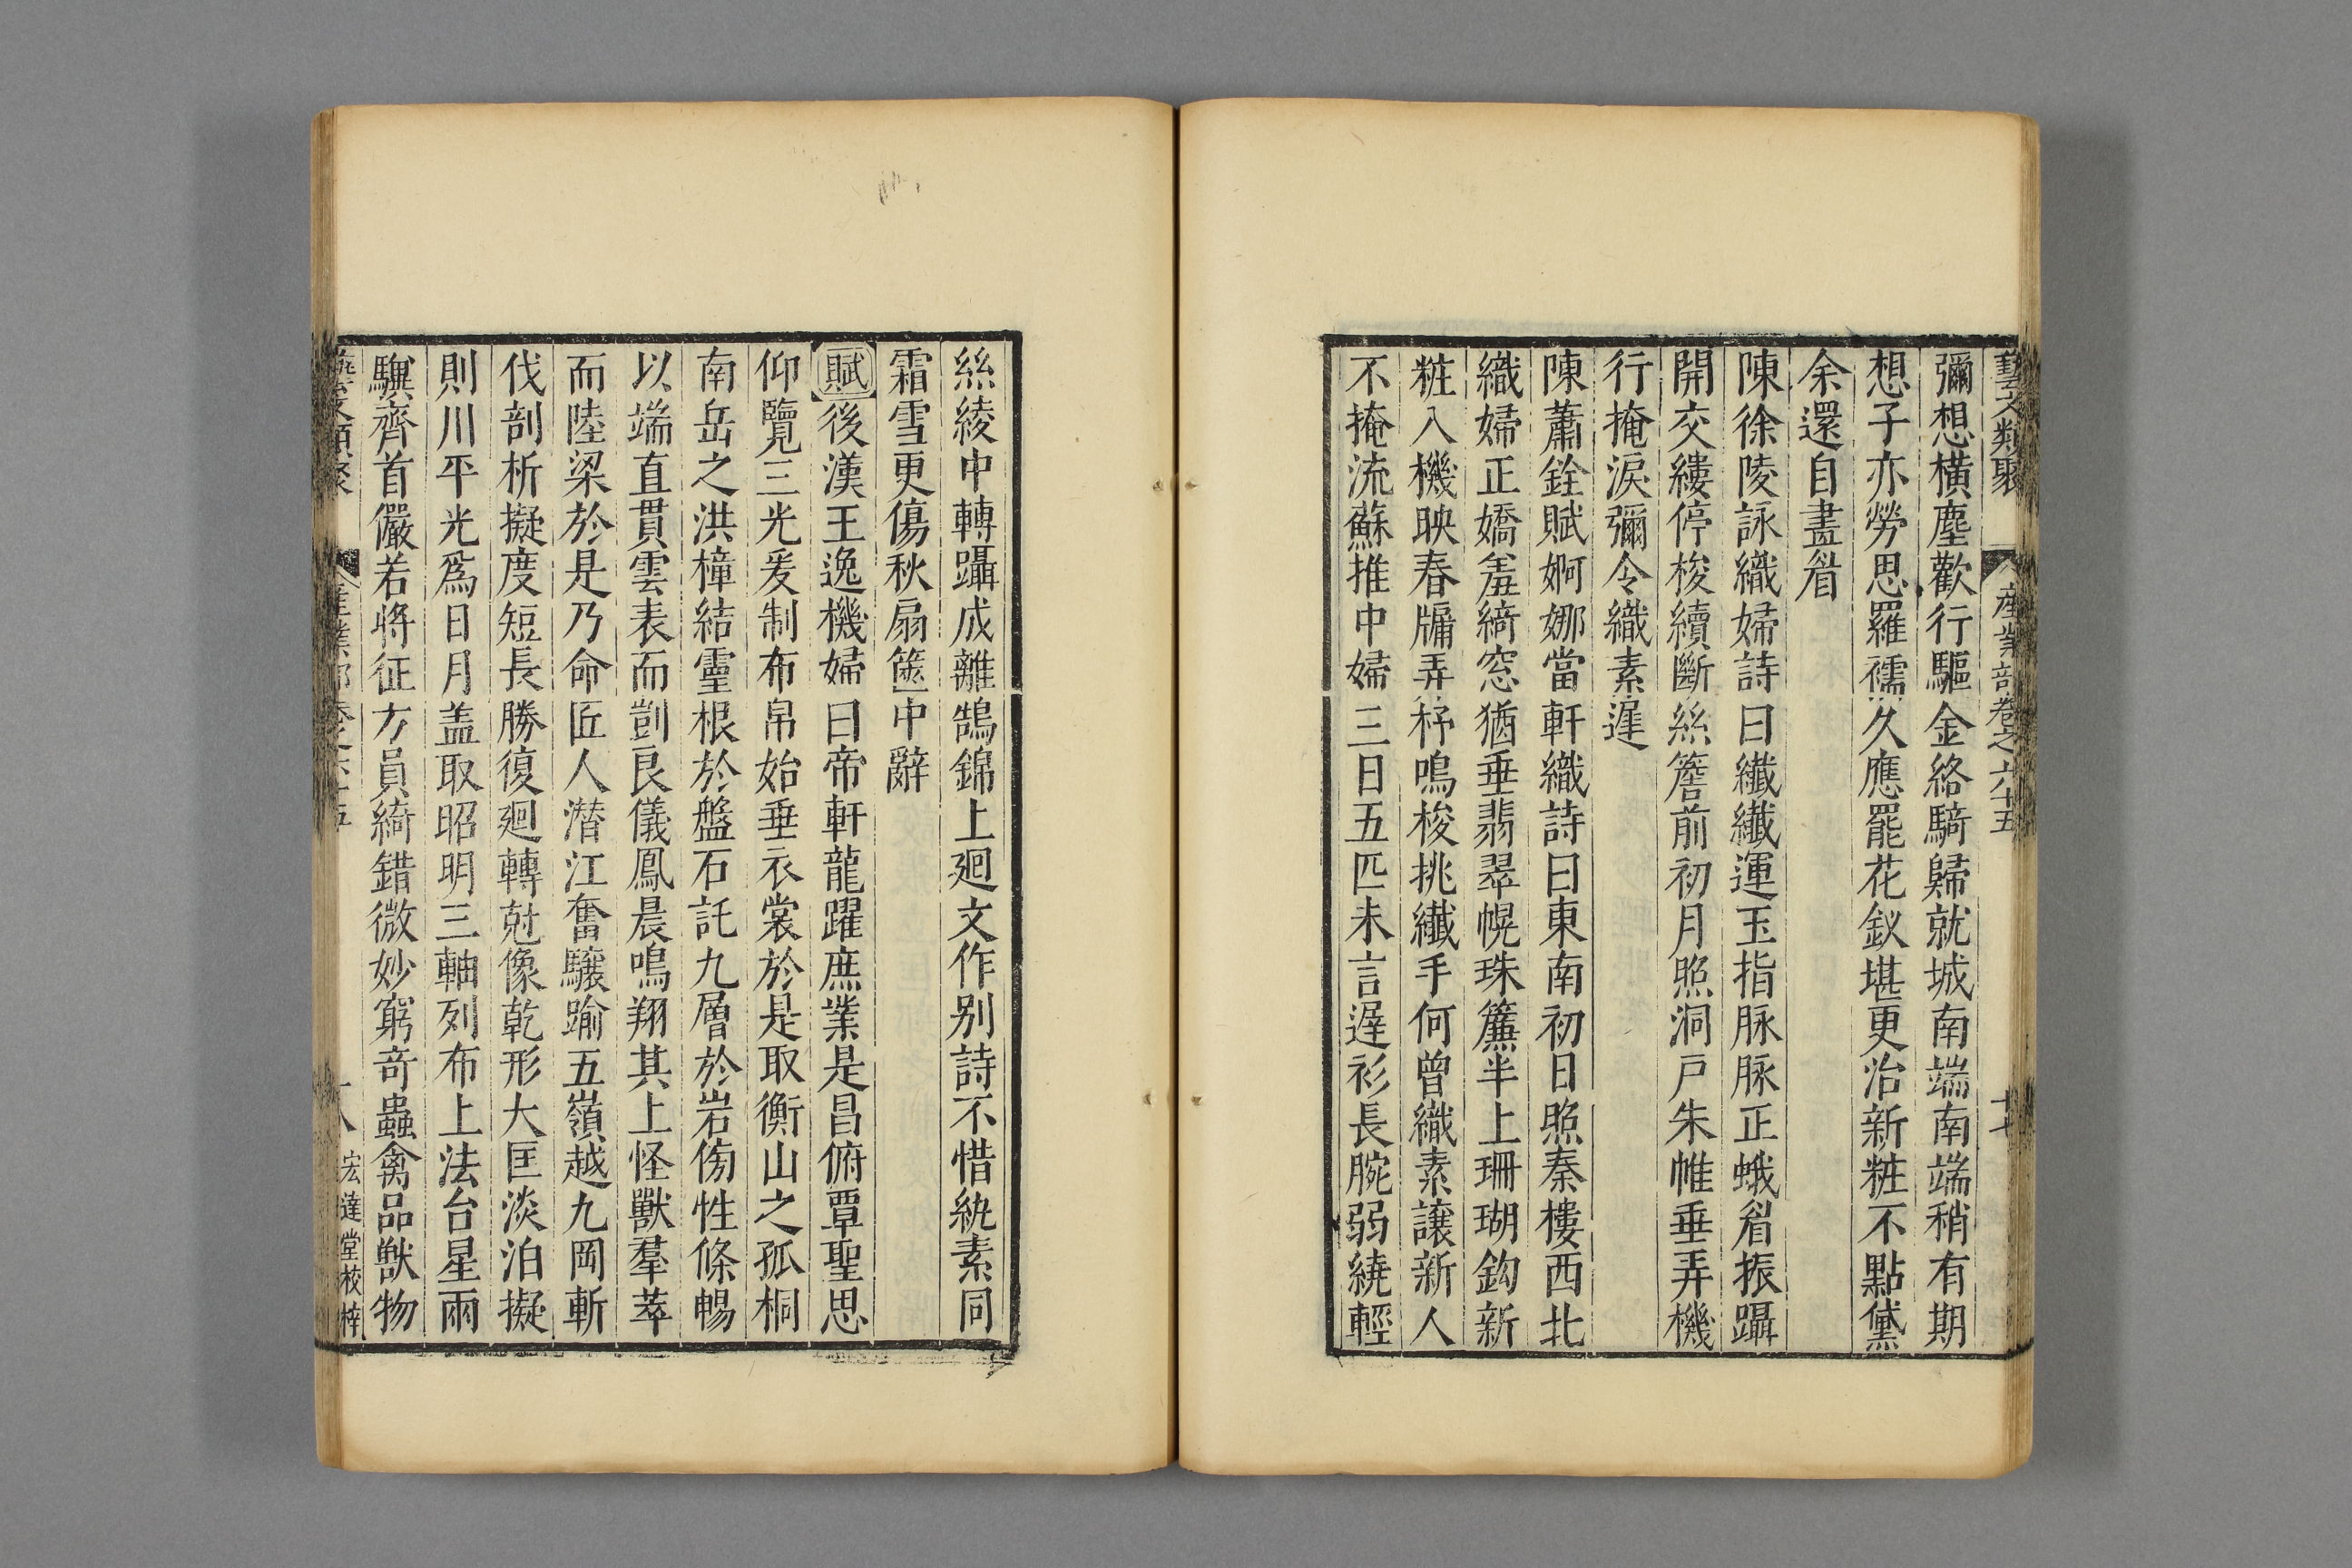 藝文類聚 産業部卷之六十五 十七
彌想橫塵歡行驅金絡騎歸就城南端南端稍有期
想子亦勞思羅襦久應罷花釵堪更治新粧不點黛
余還自畫眉
陳徐陵詠織婦詩曰纖纖運玉指脉脉正蛾眉振躡
開交縷停梭續斷絲簷前初月照洞戶朱帷垂弄機
行掩淚彌令織素遲
陳蕭銓賦婀娜當軒織詩曰東南初日照秦樓西北
織婦正嬌羞綺窓猶垂翡翠幌珠簾半上珊瑚鈎新
粧入機映春牖弄杼鳴梭挑纖手何曾織素讓新人
不掩流蘇推中婦三日五匹未言遲衫長腕弱繞輕
絲綾中轉躡成離鵠錦上廻文作别詩不惜紈素同
霜雪更傷秋扇篋中辭
賦後漢王逸機婦曰帝軒龍躍庶業是昌俯覃聖思
仰覽三光爰制布帛始垂衣裳於是取衡山之孤桐
南岳之洪樟結靈根於盤石託九層於岩傍性條暢
以端直貫雲表而剴良儀鳳晨鳴翔其上怪獸羣萃
而陸梁於是乃命匠人潛江奮驤踰五嶺越九岡斬
伐剖析擬度短長勝復廻轉尅像乾形大匡淡泊擬
則川平光爲日月盖取昭明三軸列布上法台星兩
驥齊首儼若將征方員綺錯微妙窮奇蟲禽品獸物
藝文類聚 産業部卷之六十五 十八 宏達堂校梓